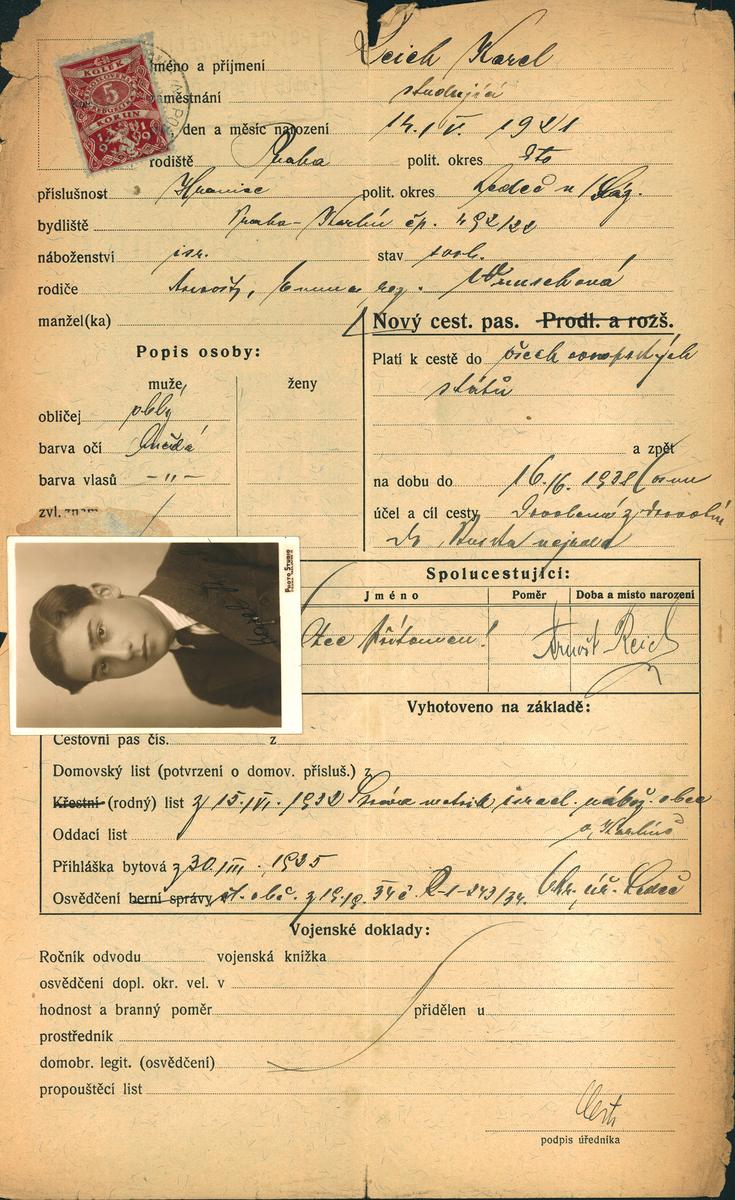 KOLEK
5
KORUN
Jméno a příjmení Reich Karel
zaměstnání studující
den a měsíc narození 14. IV. 1921
rodiště Praha polit. okres dto
příslušnost polit. okres Ledeč n/Sáz.
bydliště Praha-Karlín čp. 492/22
náboženství isr. stav svob.
rodiče Arnošt, Emma roz.
manžel(ka)
Nový cest. pas. Prodl. a rozš.
Platí k cestě do všech evropských
států
a zpět
na dobu do 16./6. 1938
účel a cíl cesty
do
Popis osoby:
muže ženy
obličej oblý
barva očí hnědá
barva vlasů -"-
zvl. znam.
PHOTO STUDIO
Spolucestující:
Jméno Poměr Doba a místo narození
Otec přítomen! Arnošt Reich
Vyhotoveno na základě:
Cestovní pas čís. z
Domovský list (potvrzení o domov. přísluš.) z
Křestní (rodný) list z 15. VI. 1932 Správa matrik israel. nábož. obce
v Karlíně
Oddací list
Přihláška bytová z 30. III. 1935
Osvědčení berní správy st. obč. z 19. 9. 34 č. R-1-243/34. Okr. úř. Ledeč
Vojenské doklady:
Ročník odvodu vojenská knížka
osvědčení dopl. okr. vel. v
hodnost a branný poměr přidělen u
prostředník
domobr. legit. (osvědčení)
propouštěcí list
podpis úředníka